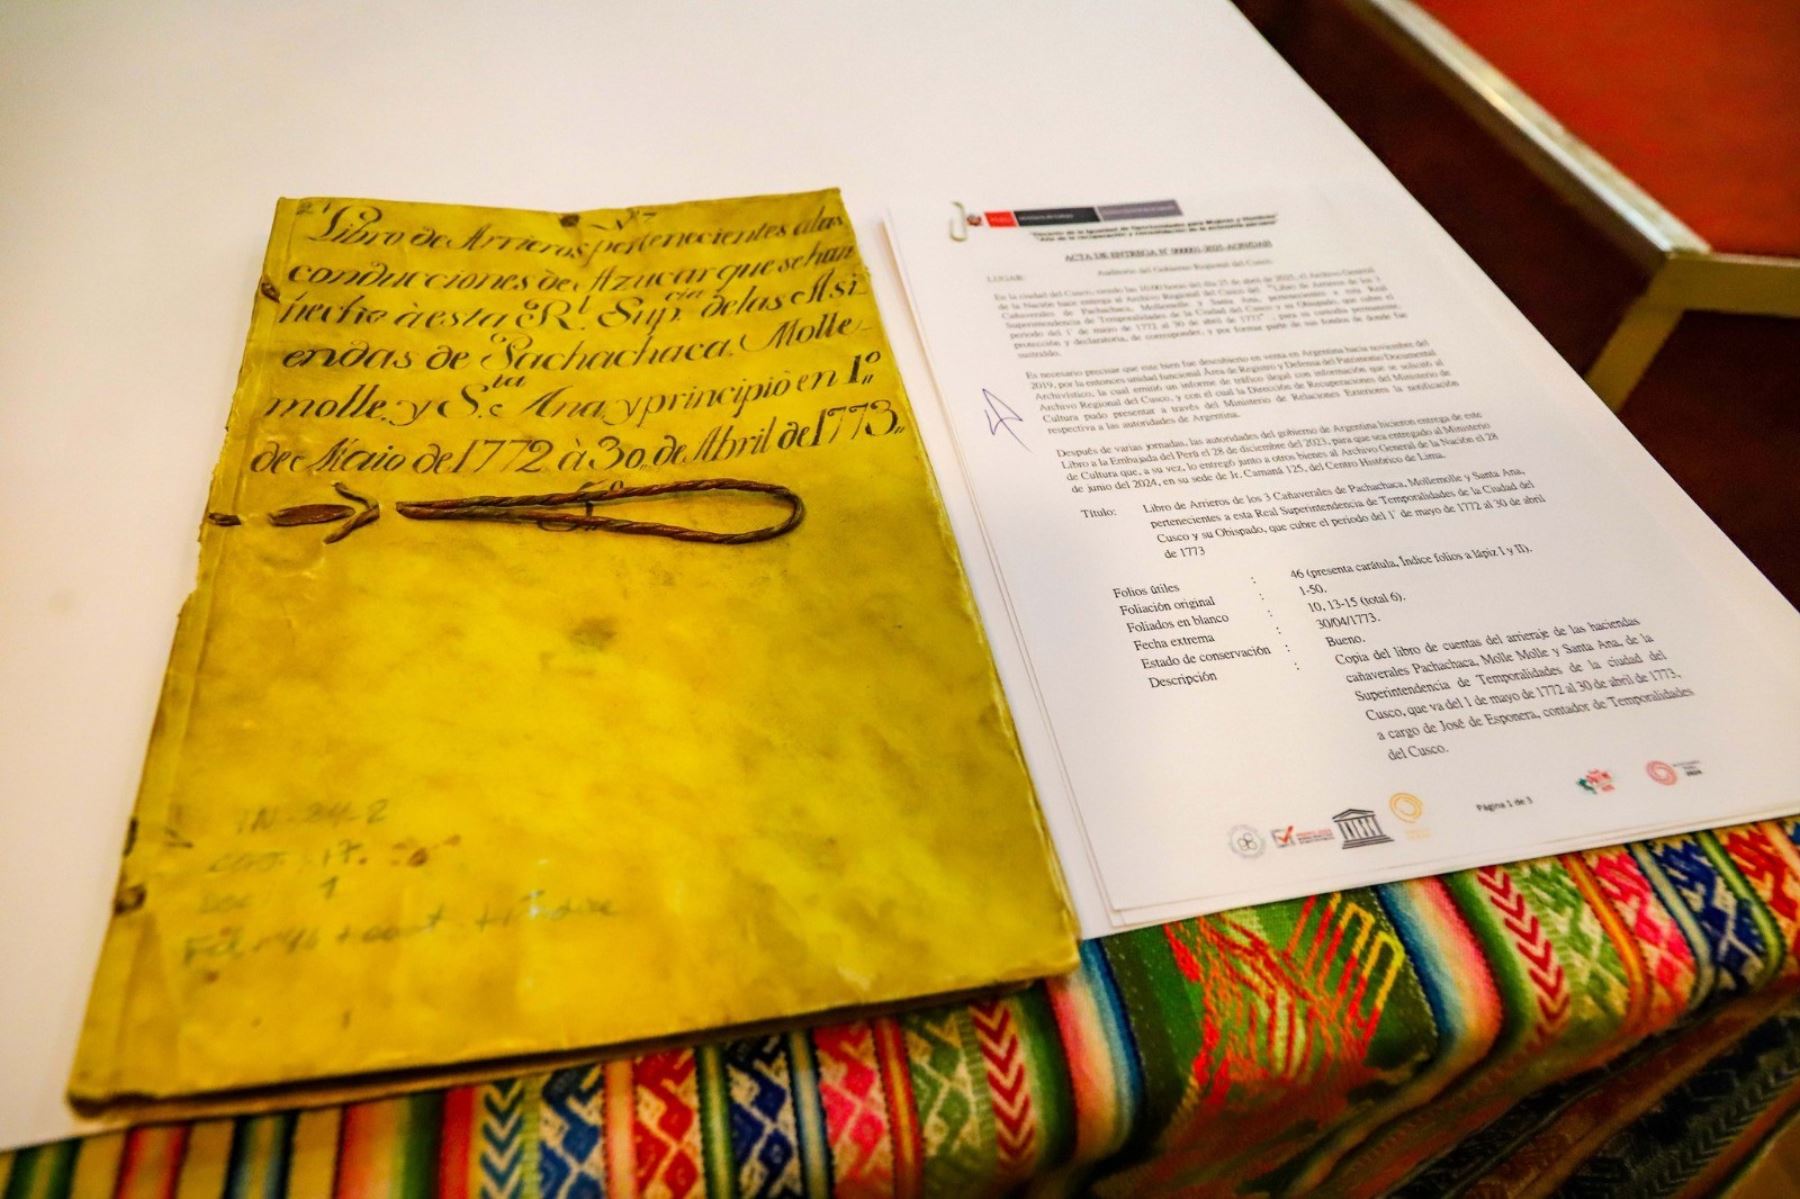 Libro de Arrieros pertenecientes a las
conducciones de Azucar que se han
hecho à esta Rl. Sup.cia de las Asi
endas de Pachachaca, Molle-
molle, y S.ta Ana, y principio en 1.º
de Maio de 1772 à 30,, de Abril de 1773,,
"Decenio de la Igualdad de Oportunidades para Mujeres y Hombres"
"Año de la recuperación y consolidación de la economía peruana"
ACTA DE ENTREGA N° 000001-2025-AGN/DAH
LUGAR: Auditorio del Gobierno Regional del Cusco.
En la ciudad del Cusco, siendo las 10:00 horas del día 25 de abril de 2025, el Archivo General
de la Nación hace entrega al Archivo Regional del Cusco del "Libro de Arrieros de los 3
Cañaverales de Pachachaca, Mollemolle y Santa Ana, pertenecientes a esta Real
Superintendencia de Temporalidades de la Ciudad del Cusco y su Obispado, que cubre el
periodo del 1° de mayo de 1772 al 30 de abril de 1773", para su custodia permanente,
protección y declaratoria, de corresponder, y por formar parte de sus fondos de donde fue
sustraído.
Es necesario precisar que este bien fue descubierto en venta en Argentina hacia noviembre del
2019, por la entonces unidad funcional Área de Registro y Defensa del Patrimonio Documental
Archivístico, la cual emitió un informe de tráfico ilegal con información que se solicitó al
Archivo Regional del Cusco, y con el cual la Dirección de Recuperaciones del Ministerio de
Cultura pudo presentar a través del Ministerio de Relaciones Exteriores la notificación
respectiva a las autoridades de Argentina.
Después de varias jornadas, las autoridades del gobierno de Argentina hicieron entrega de este
Libro a la Embajada del Perú el 28 de diciembre del 2023, para que sea entregado al Ministerio
de Cultura que, a su vez, lo entregó junto a otros bienes al Archivo General de la Nación el 28
de junio del 2024, en su sede de Jr. Camaná 125, del Centro Histórico de Lima.
Título: Libro de Arrieros de los 3 Cañaverales de Pachachaca, Mollemolle y Santa Ana,
pertenecientes a esta Real Superintendencia de Temporalidades de la Ciudad del
Cusco y su Obispado, que cubre el periodo del 1° de mayo de 1772 al 30 de abril
de 1773
Folios útiles : 46 (presenta carátula, Índice folios a lápiz I y II).
Foliación original : 1-50.
Foliados en blanco : 10, 13-15 (total 6).
Fecha extrema : 30/04/1773.
Estado de conservación : Bueno.
Descripción : Copia del libro de cuentas del arrieraje de las haciendas
cañaverales Pachachaca, Molle Molle y Santa Ana, de la
Superintendencia de Temporalidades de la ciudad del
Cusco, que va del 1 de mayo de 1772 al 30 de abril de 1773,
a cargo de José de Esponera, contador de Temporalidades
del Cusco.
Página 1 de 3